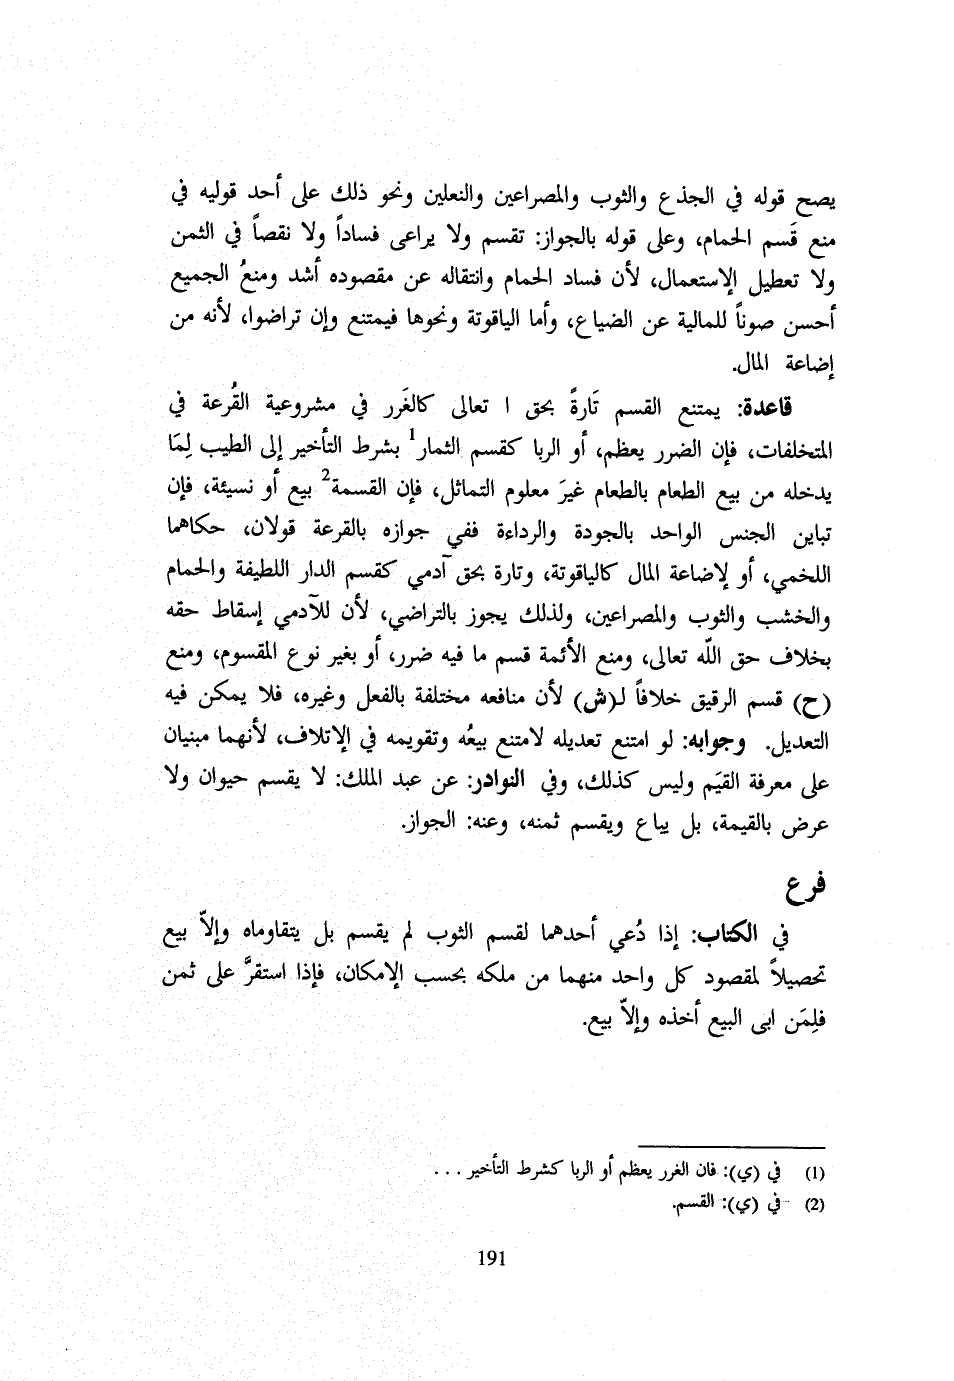 يصح قوله في الجذع والثوب والمصراعين والنعلين ونحو ذلك على أحد قوليه في
منع قَسم الحمام، وعلى قوله بالجواز: تقسم ولا يراعى فساداً ولا نقصاً في الثمن
ولا تعطيل الإستعمال، لأن فساد الحمام وانتقاله عن مقصوده أشد ومنعُ الجميع
أحسن صوناً للمالية عن الضياع، وأما الياقوتة ونحوها فيمتنع وإن تراضوا، لأنه من
إضاعة المال.
قاعدة: يمتنع القسم تَارةً بحق ا تعالى كالغَرر في مشروعية القُرعة في
المتخلفات، فإن الضرر يعظم، أو الربا كقسم الثمار1 بشرط التأخير إلى الطيب لِمَا
يدخله من بيع الطعام بالطعام غيرَ معلوم التماثل، فإن القسمة2 بيع أو نسيئة، فإن
تباين الجنس الواحد بالجودة والرداءة ففي جوازه بالقرعة قولان، حكاهما
اللخمي، أو لإضاعة المال كالياقوتة، وتارة بحق آدمي كقسم الدار اللطيفة والحمام
والخشب والثوب والمصراعين، ولذلك يجوز بالتراضي، لأن للآدمي إسقاط حقه
بخلاف حق اللّه تعالى، ومنع الأئمة قسم ما فيه ضرر، أو بغير نوع المقسوم، ومنع
(ح) قسم الرقيق خلافاً لـ(ش) لأن منافعه مختلفة بالفعل وغيره، فلا يمكن فيه
التعديل. وجوابه: لو امتنع تعديله لامتنع بيعُه وتقويمه في الإتلاف، لأنهما مبنيان
على معرفة القيَم وليس كذلك، وفي النوادر: عن عبد الملك: لا يقسم حيوان ولا
عرض بالقيمة، بل يباع ويقسم ثمنه، وعنه: الجواز.
فرع
في الكتاب: إذا دُعي أحدهما لقسم الثوب لم يقسم بل يتقاوماه وإلاّ بيع
تحصيلاً لمقصود كل واحد منهما من ملكه بحسب الإمكان، فإذا استقرَّ على ثمن
فلِمَن ابى البيع أخذه وإلاّ بيع.
(1) في (ي): فان الغرر يعظم أو الربا كشرط التأخير . . .
(2) في (ي): القسم.
191